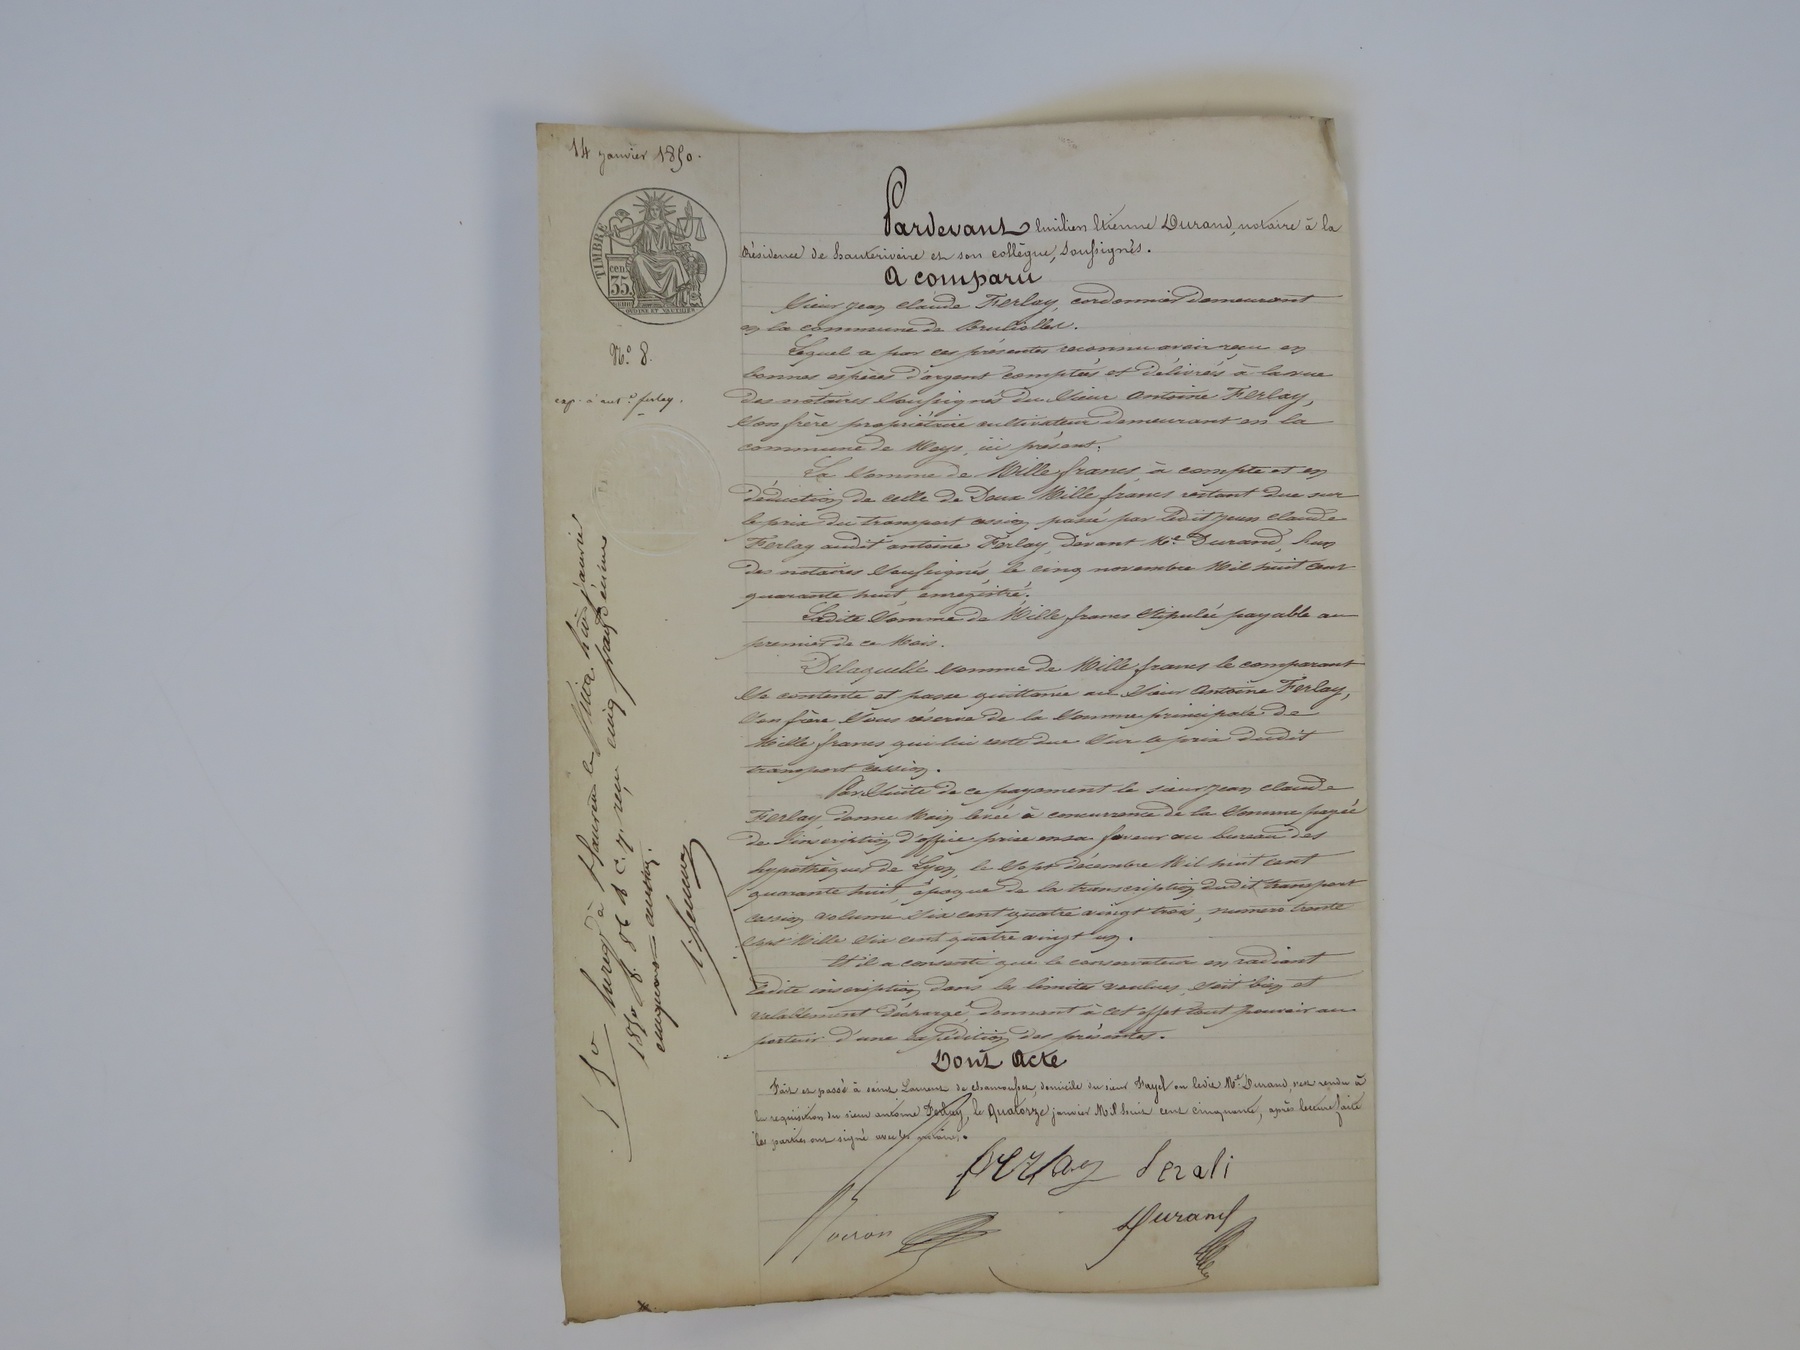 14 janvier 1850.
TIMBRE
cent.
35
N.o 8.
exp. à ant.e ferlay.
Pardevant Emilien Etienne Durand, notaire à la
Résidence de hauterivoire et son collègue, soussignés.
A comparu
Sieur jean claude Ferlay, cordonnier demeurant
en la commune de Brullioles.
Lequel a par ces présentes reconnu avoir reçu en
bonnes espèces d'argent comptées et délivrés à la vue
des notaires soussignés du sieur Antoine Ferlay,
son frère propriétaire cultivateur demeurant en la
commune de Meys, ici présent.
La somme de Mille francs, à compte et en
déduction de celle de Deux Mille francs restant due sur
le prix du transport cession passé par ledit jean claude
Ferlay audit antoine Ferlay, devant Me. Durand, l'un
des notaires soussignés, le cinq novembre Mil huit cent
quarante huit, enregistré.
Ladite somme de Mille francs stipulée payable au
premier de ce Mois.
De laquelle somme de Mille francs le comparant
se contente et passe quittance au sieur Antoine Ferlay,
son frère sous réserve de la somme principale de
Mille francs qui lui reste due sur le prix dudit
transport cession.
Par suite de ce payement le sieur jean claude
Ferlay donne Main levée à concurrence de la somme payée
de l'inscription d'office prise en sa faveur au bureau des
hypothèques de Lyon, le sept décembre Mil huit cent
quarante huit, époque de la transcription dudit transport
cession volume six cent quatre vingt trois, numéro trente
sept Mille six cent quatre vingt un.
Et il a consenti que le conservateur en radiant
ladite inscription dans les limites voulues, soit bien et
valablement déchargé, donnant à cet effet tout pouvoir au
porteur d'une expédition des présentes.
Dont Acte
Fait et passé à saint Laurent de chamousset, domicile du sieur Fayel ou ledit Me. Durand, s'est rendu à
la requisition du sieur antoine Ferlay, le Quatorze janvier Mil huit cent cinquante, après lecture faite
les parties ont signé avec les notaires.
ferlay ferali
Durand
janvier
1850 f. 86 c. 7 reçu cinq francs décime
cinquante centimes.